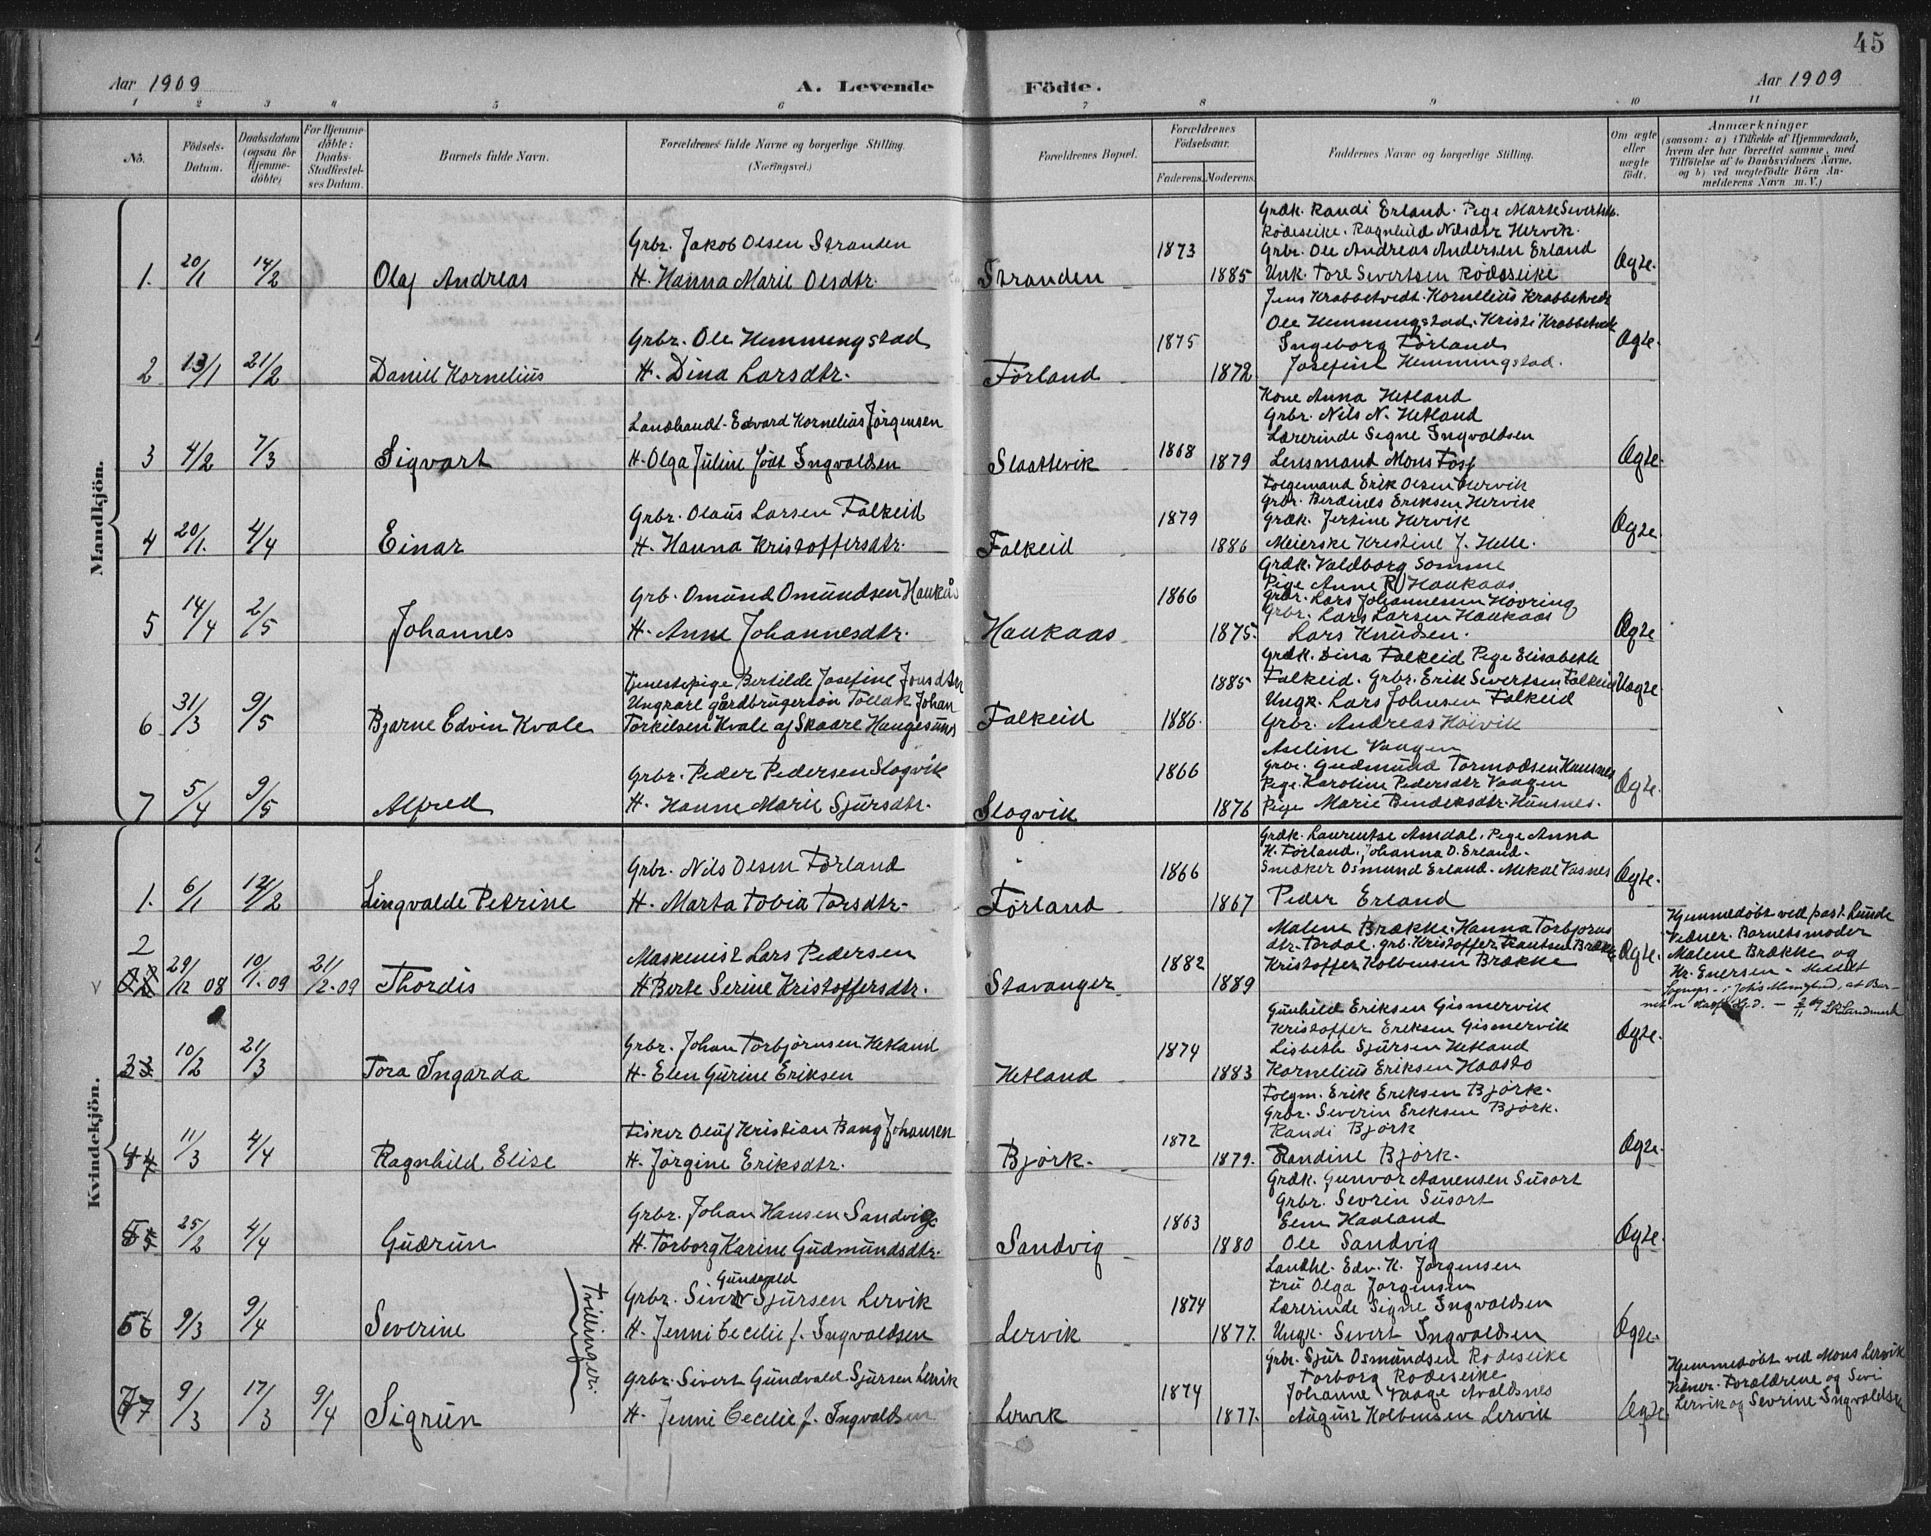 45
Aar 1909
A. Levende
Födte.
Aar 1909
1 2 3 4 5 6 7 8 9 10 11
No.
Födsels-
Datum.
Daabsdatum
(ogsaa for
Hjemme-
döbte)
For Hjemme-
döbte:
Daabs-
Stadfæstel-
ses Datum.
Barnets fulde Navn.
Forældrenes fulde Navne og borgerlige Stilling.
(Næringsvei.)
Forældrenes Bopæl.
Forældrenes
Födselsaar.
Faderens.
Moderens.
Faddernes Navne og borgerlige Stilling.
Om ægte
eller
uægte
födt.
Anmærkninger
(saasom: a) i Tilfælde af Hjemmedaab,
hvem der har forrettet samme, med
Tilföielse af to Daabsvidners Navne,
og b) ved uægtefödte Börn An-
melderens Navn m. V.)
Mandkjön.
1. 20/1 14/2 Olaf Andreas
Grbr. Jakob Olsen Stranden
H. Hanna Marie Olsdtr.
Stranden
1873
1885
Grdk. Randi Erland. Pige Marte Sivertsen
Rödeseike. Ragnhild Nilsdtr Hervik.
Grbr. Ole Andreas Andersen Erland
Unk. Tore Sivertsen Rödeseike
Ægte.
2 13/1 21/2 Daniel Kornelius
Grbr. Ole Hemmingstad
H. Dina Larsdtr.
Førland
1875
1872
Jens Krabbetvedt. Kornelius Krabbetvedt
Ole Hemmingstad. Kristi Krabbetvedt
Ingeborg Førland
Josefine Hemmingstad.
Ægte.
3 4/2 7/3 Sigvart
Landhandl. Edvard Kornelius Jörgensen
H. Olga Juline födt Ingvaldsen
Slaattevik
1868
1879
Kone Anna Hetland
Grbr. Nils N. Hetland
Lærerinde Signe Ingvaldsen
Lensmand Mons Foss
Ægte.
4 20/1. 4/4 Einar
Grbr. Olaus Larsen Falkeid
H. Hanna Kristoffersdtr.
Falkeid
1879
1886
Folgemand Erik Olsen Hervik
Grbr. Berdines Eriksen Hervik
Grdk. Jertine Hervik
Meierske Kristine J. Helle.
Ægte.
5 14/4 2/5 Johannes
Grb. Omund Omundsen Haukås
H. Anne Johannesdtr.
Haukaas
1866
1875.
Grdk. Valdborg Somme
Pige Anne R. Haukaas
Grbr. Lars Johannessen Hovring
Grbr. Lars Larsen Haukaas
Lars Knudsen.
Ægte
6 31/3 9/5 Bjarne Edvin Kvale
Tjenestepige Bertilde Josefine Jonsdtr
Ungkarl gårdbrugersön Tollak Johan
Torkilsen Kvale af Skaare Haugesund
Falkeid
1885
1886.
Grdk. Dina Falkeid Pige Elisabeth
Falkeid. Grbr. Erik Sivertsen Falkeid
Ungk. Lars Johnsen Falkeid
Grbr. Andreas Höivik
Uægte.
7 5/4 9/5 Alfred
Grbr. Peder Pedersen Slogvik
H. Hanne Marie Sjursdtr.
Slogvik
1866
1876
Aseline Vaagen
Grbr. Gudmund Tormodsen Hausnes
Pige. Karoline Pedersdtr Vaagen
Pige Marie Bendiksdtr. Hausnes.
Ægte.
Kvindekjön.
1. 6/1 14/2 Lingvalde Petrine
Grbr. Nils Olsen Førland
H. Marta Tobia Torsdtr.
Førland
1866
1867
Grdk. Laurentse Amdal. Pige Anna
H. Førland. Johanna O. Erland.
Snedker Osmund Erland. Mikal Vasnes
Peder Erland
Ægte.
2 29/12 08 10/1.09 21/2.09 Thordis
Maskenist Lars Pedersen
H. Berte Serine Kristoffersdtr.
Stavanger
1882
1889
Malene Brække. Hanna Torbjorns
dtr. Ørdal. grb. Kristoffer Knutsen Brække
Kristoffer Kolbensen Brække
Ægte.
Hjemmedøbt ved past. Lunde
Vidner. Barnets moder
Malene Brække og
Kr. Enersen
33 10/2 21/3 Tora Ingarda
Grbr. Johan Torbjörnsen Hetland
H. Elen Gurine Eriksen
Hetland
1874
1883
Gunhild Eriksen Gismervik
Kristoffer Eriksen Gismervik
Lisbeth Sjursen Hetland
Kornelius Eriksen Haasto
Ægte.
44 11/3 4/4 Ragnhild Elise
Fisker Oluf Kristian Bang Johansen
H. Jørgine Eriksdtr.
Bjørk.
1872
1879.
Folgm. Erik Eriksen Bjørk.
Grbr. Severin Eriksen Bjørk.
Randi Bjørk
Randine Bjørk.
Ægte.
55 25/2 4/4 Gudrun
Grbr. Johan Hansen Sandvig.
H. Torborg Karine Gudmundsdtr.
Sandvig
1863
1880
Grdk. Gunvor Aanensen Susort
Grbr. Sevrin Susort
Elen Haaland
Ole Sandvig
Ægte.
56 9/3 9/4 Severine
Tvillinger.
Gundvald
Grbr. Sivert Sjursen Lervik
H. Jenni Cecilie f. Ingvaldsen
Lervik
1874
1877.
Landhl. Edv. K. Jørgensen
Fru Olga Jorgensen
Lærerinde Signe Ingvaldsen
Ungk. Sivert Ingvaldsen
Ægte.
77 9/3 17/3 9/4 Sigrun
Grbr. Sivert Gundvald Sjursen Lervik
H. Jenni Cecilie f. Ingvaldsen
Lervik
1874
1877.
Grbr. Sjur Osmundsen Rodeseike
Torborg Rodeseike
Johanne Vaage Avaldsnes
August Kolbensen Lervik
Ægte.
Hjemmedøbt ved Mons Lervik
Vidner. Forældrene og Sivi
Lervik og Sevrine Ingvaldsen